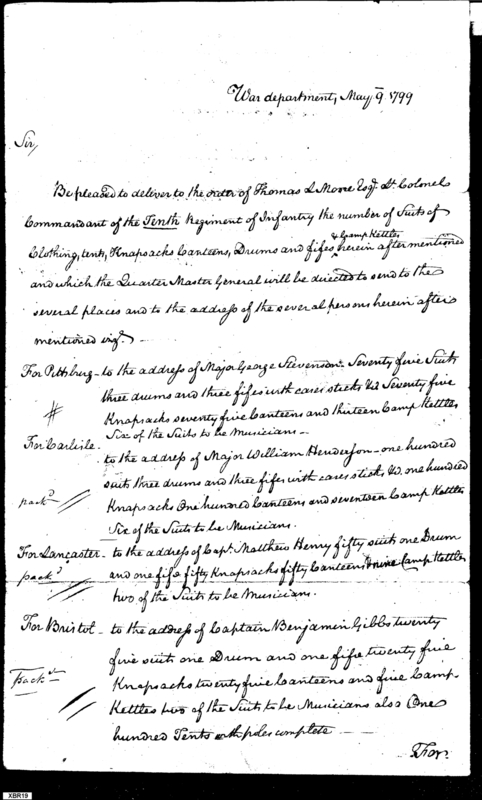 War department, May 9. 1799
Sir,
Be pleased to deliver to the order of Thomas L Moore Esqr. Lt. Colonel
Commandant of the Tenth Regiment of Infantry the number of Suits of
& Camp Kettles
Clothing, tents, Knapsacks Canteens, Drums and fifes herein after mentioned
and which the Quarter Master General will be directed to send to the
several places and to the address of the several persons herein after
mentioned vizt.
For Pittsburg - to the address of Major George Stevenson - Seventy five Suits
three drums and three fifes with cases sticks &a Seventy five
# Knapsacks seventy five Canteens and thirteen Camp Kettles
Six of the Suits to be Musicians -
For Carlisle - to the address of Major William Henderson - one hundred
suits three drums and three fifes with cases sticks &c. one hundred
packd. // Knapsacks One hundred Canteens and seventeen Camp Kettles
Six of the Suits to be Musicians.
For Lancaster - to the address of Capt. Matthew Henry fifty suits one Drum
packd. // and one fife fifty Knapsacks fifty Canteens & nine Camp Kettles
two of the Suits to be Musicians.
For Bristol - to the address of Captain Benjamin Gibbs twenty
five suits one Drum and one fife twenty five
packd. // Knapsacks twenty five Canteens and five Camp-
Kettles two of the Suits to be Musicians also One
hundred Tents with poles complete -
For.
XBR19